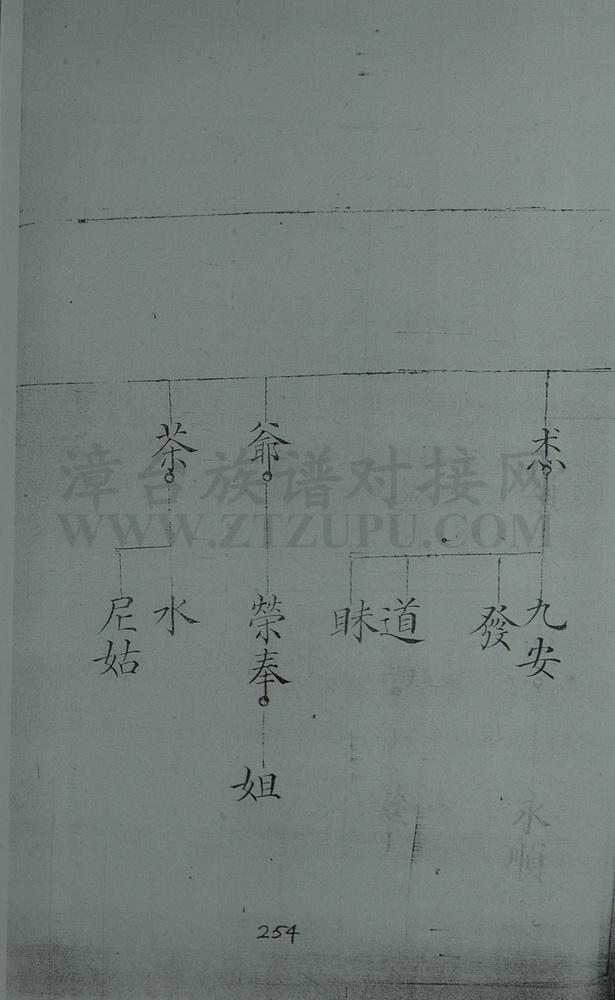 杰
爺
茶
九安
發
道
昧
榮奉
水
尼姑
姐
永順
254
漳台族谱对接网
WWW.ZTZUPU.COM